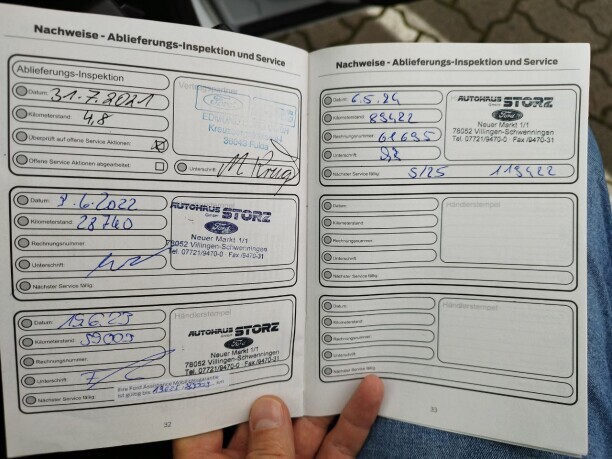 Nachweise - Ablieferungs-Inspektion und Service
Ablieferungs-Inspektion
Datum: 31.7.2021
Kilometerstand: 4,8
Überprüft auf offene Service Aktionen:
Offene Service Aktionen abgearbeitet:
Vertragspartner
Ford
36043 Fulda
Unterschrift: M. Krug
Datum: 8.6.2022
Kilometerstand: 28740
Rechnungsnummer:
Unterschrift:
Nächster Service fällig:
Händlerstempel
AUTOHAUS STORZ
GmbH
Ford
Neuer Markt 1/1
78052 Villingen-Schwenningen
Tel. 07721/9470-0 · Fax /9470-31
Datum: 19.6.23
Kilometerstand: 59009
Rechnungsnummer:
Unterschrift:
Nächster Service fällig:
Händlerstempel
AUTOHAUS STORZ
GmbH
Ford
Neuer Markt 1/1
78052 Villingen-Schwenningen
Tel. 07721/9470-0 · Fax /9470-31
Ihre Ford Assistance Mobilitätsgarantie
ist gültig bis
km
32
Nachweise - Ablieferungs-Inspektion und Service
Datum: 6.5.24
Kilometerstand: 89422
Rechnungsnummer: 61695
Unterschrift:
Nächster Service fällig: 5/25 119422
AUTOHAUS STORZ
GmbH
Ford
Neuer Markt 1/1
78052 Villingen-Schwenningen
Tel. 07721/9470-0 · Fax /9470-31
Datum:
Kilometerstand:
Rechnungsnummer:
Unterschrift:
Nächster Service fällig:
Händlerstempel
Datum:
Kilometerstand:
Rechnungsnummer:
Unterschrift:
Nächster Service fällig:
Händlerstempel
33